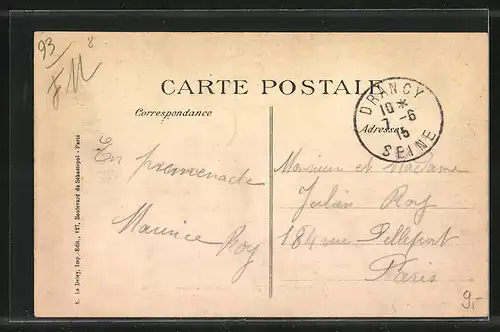 93 8
FM
CARTE POSTALE
Correspondance
Adresse
DRANCY
10 *
7 - 6
15
SEINE
En promenade
Maurice Roy
Monsieur et Madame
Julien Roy
184 rue Pelleport
Paris
9.-
E. Le Deley, Imp.-Édit., 127, Boulevard de Sébastopol - Paris